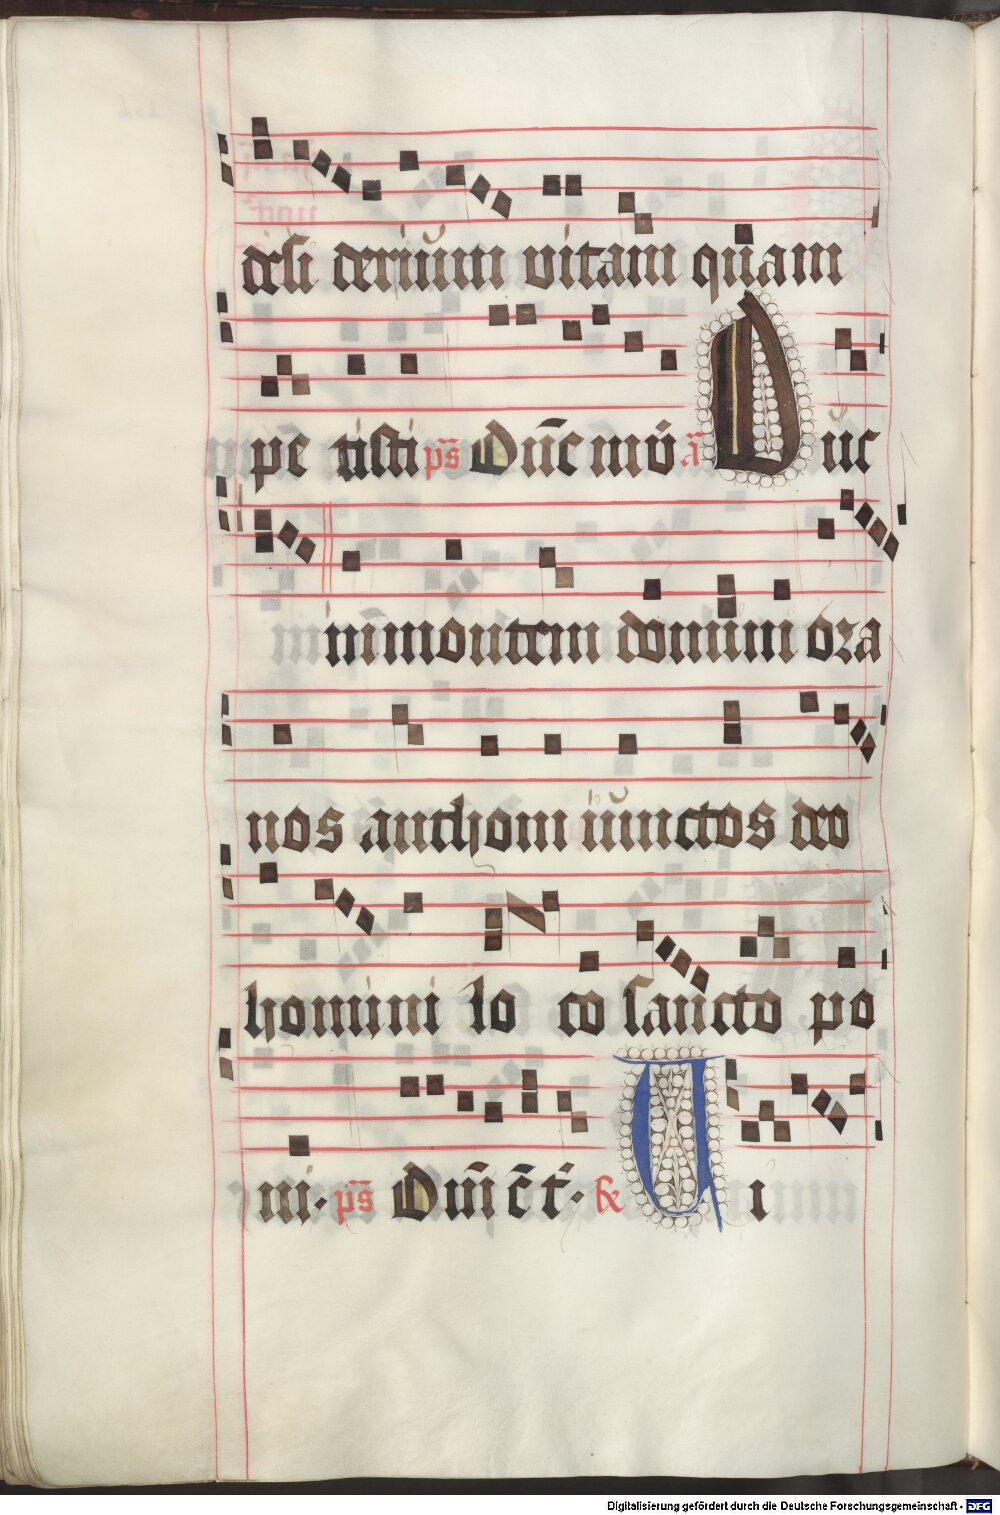 desi derium vitam quam
pe tisti p̄s Dn̄e in v́ aᷓ Duc
in montem domini ora
nos anthoni iunctos deo
homini lo co sancto po
ni · p̄s Dn̄i ē t́ · Ui
Digitalisierung gefördert durch die Deutsche Forschungsgemeinschaft - DFG